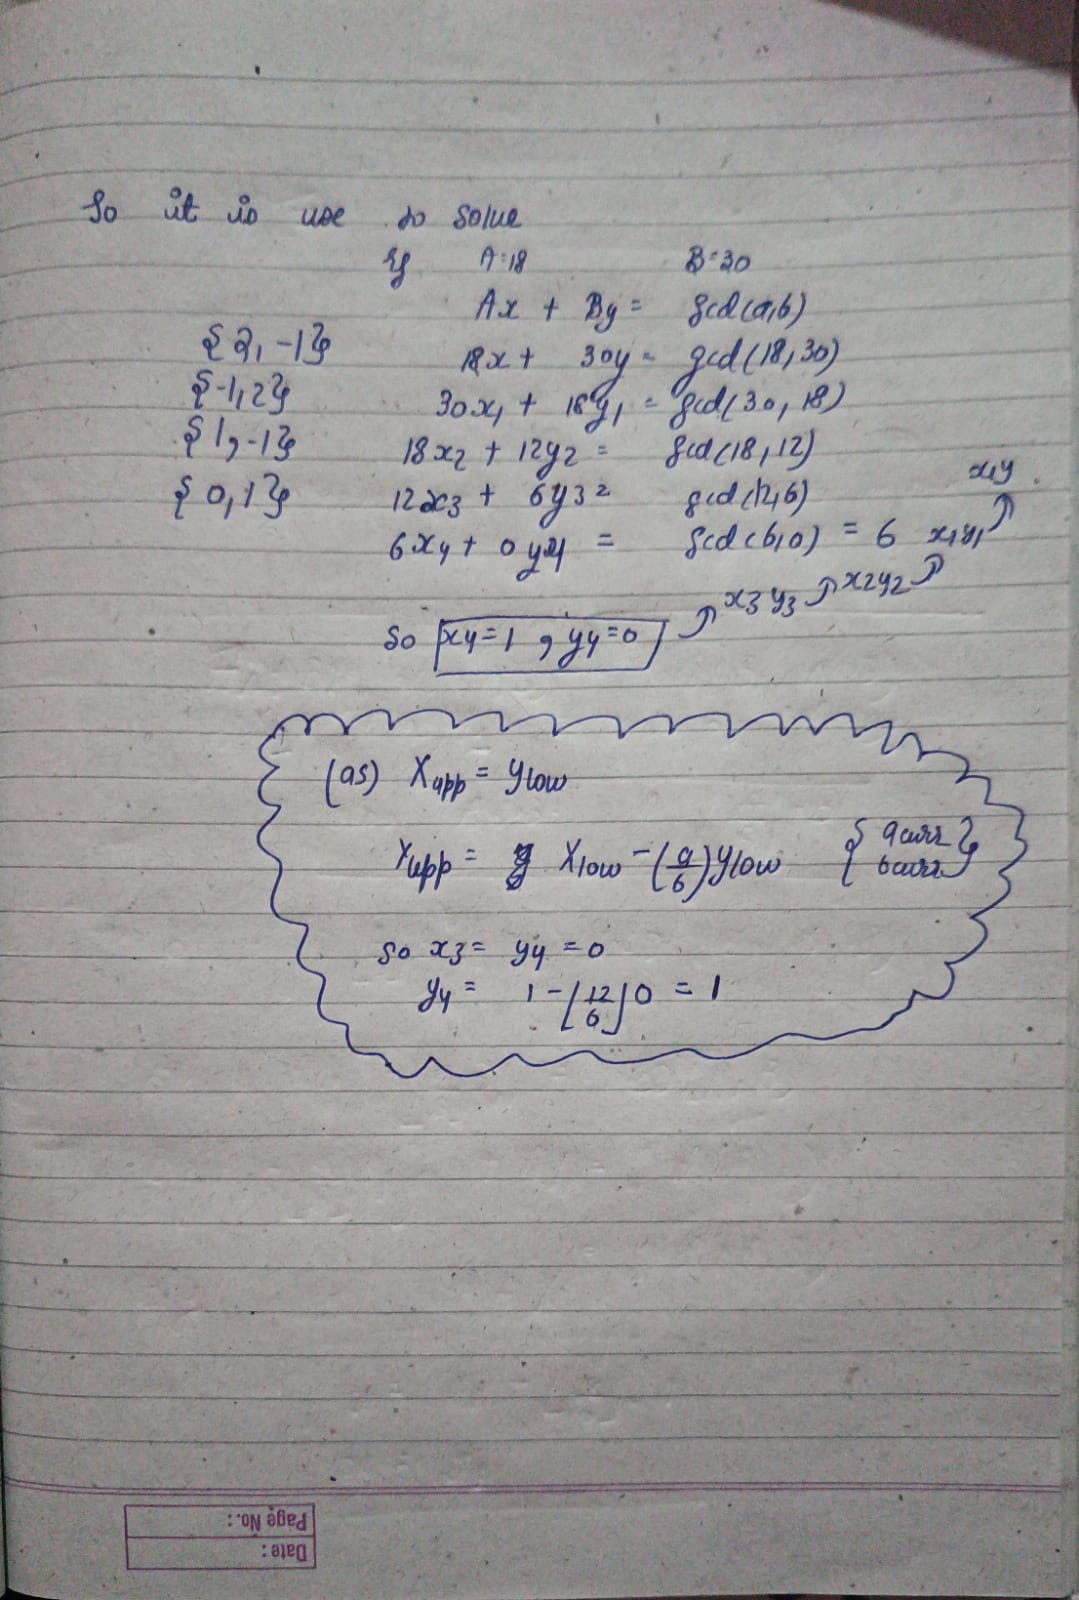 So it is use to solve
Eg A=18 B=30
Ax + By = gcd(a,b)
{2,-1} 18x + 30y = gcd(18,30)
{-1,2} 30x1 + 18y1 = gcd(30,18)
{1,-1} 18x2 + 12y2 = gcd(18,12)
{0,1} 12x3 + 6y3 = gcd(12,6) x,y
6x4 + 0y4 = gcd(6,0) = 6 x1y1
x3y3 x2y2
So x4=1, y4=0
(as) Xupp = ylow
Yupp = Xlow - (a/b)ylow {acurr
bcurr}
So x3 = y4 = 0
y4 = 1 - [12/6]0 = 1
Page No.:
Date: